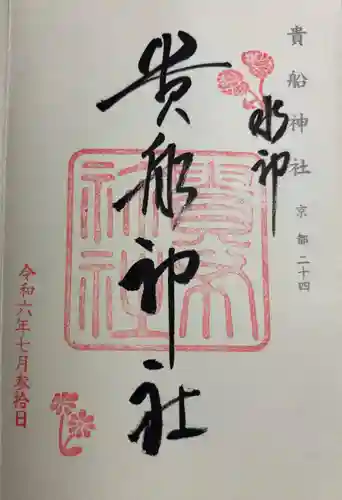 貴船神社 京都二十四
水神
貴船神社
令和六年七月参拾日
貴船神社